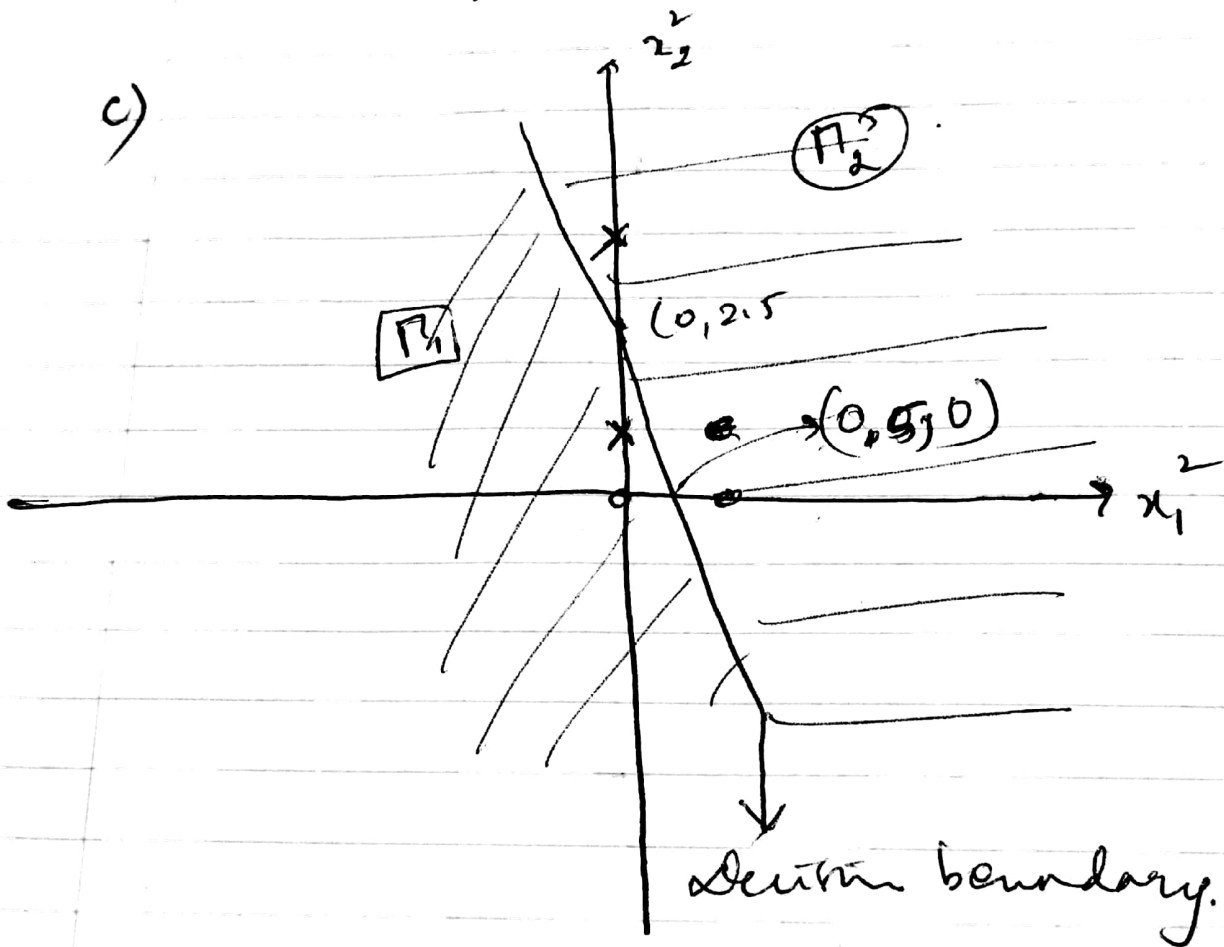 c)
x₂²
Π₂
Π₁
(0, 2.5
(0.5, 0)
x₁²
Decision boundary.